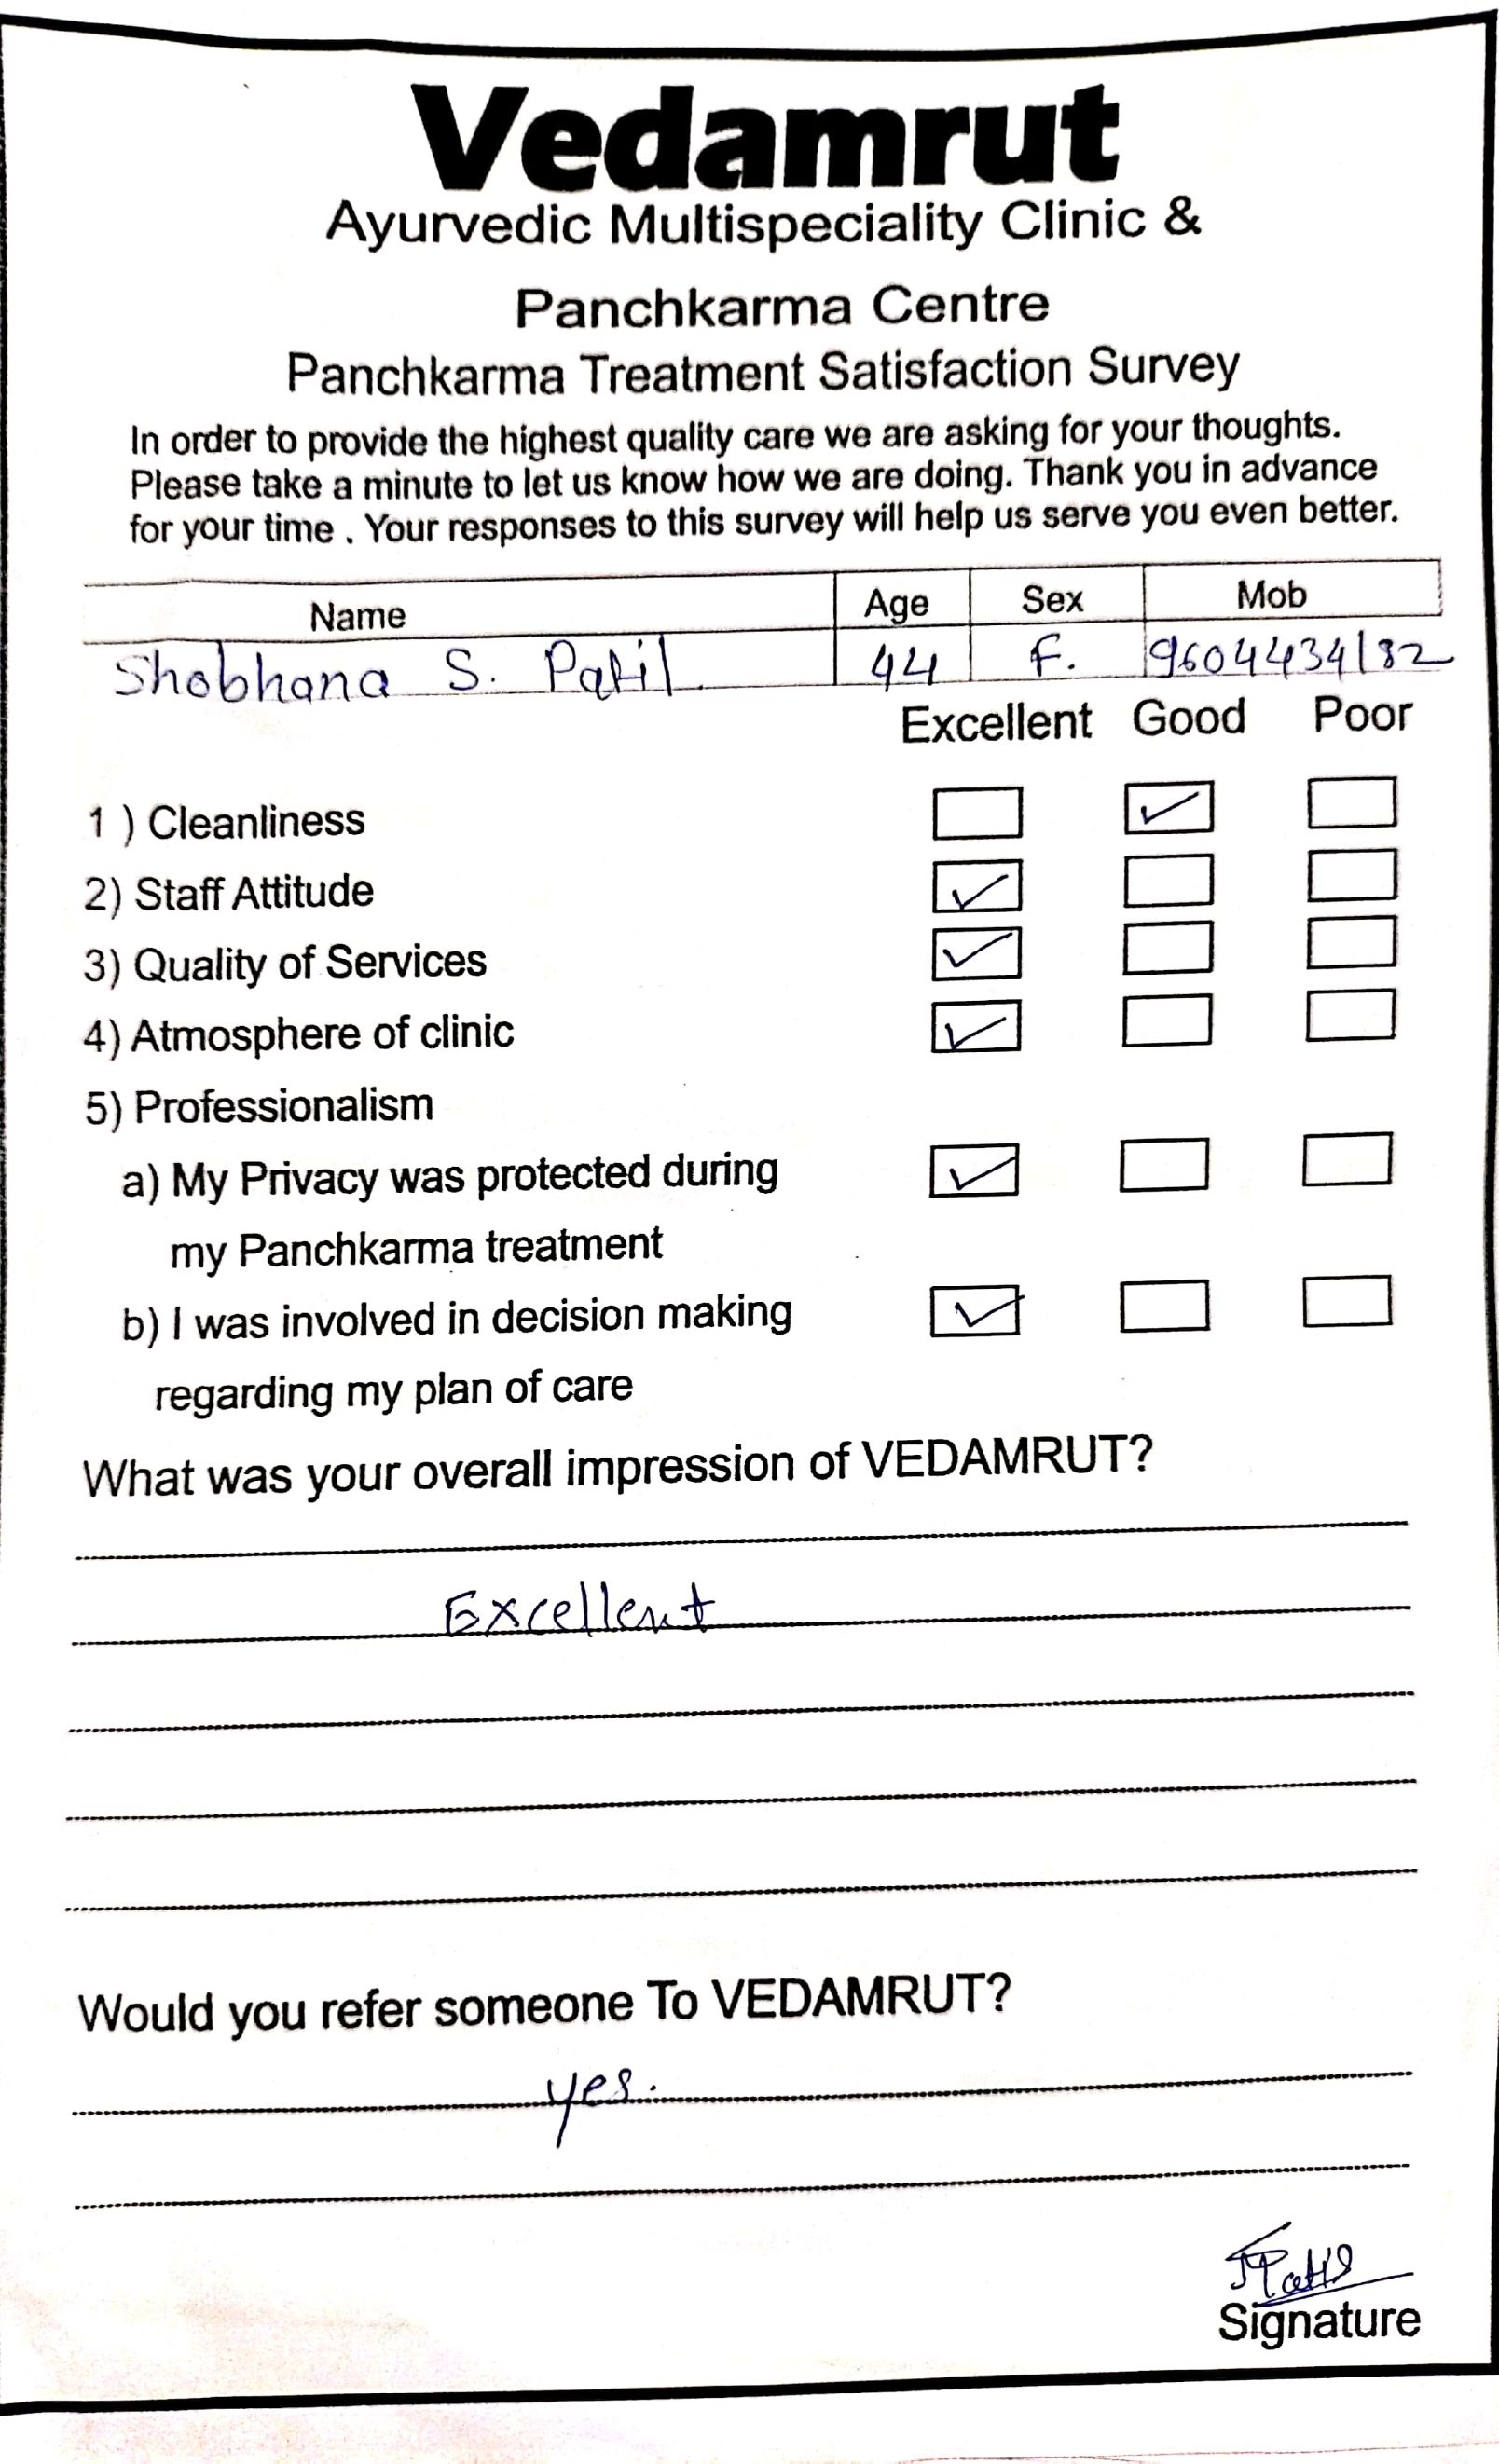 Vedamrut
Ayurvedic Multispeciality Clinic &
Panchkarma Centre
Panchkarma Treatment Satisfaction Survey
In order to provide the highest quality care we are asking for your thoughts.
Please take a minute to let us know how we are doing. Thank you in advance
for your time . Your responses to this survey will help us serve you even better.
Name Age Sex Mob
Shobhana S. Patil. 44 F. 9604434182
Excellent Good Poor
1 ) Cleanliness
2) Staff Attitude
3) Quality of Services
4) Atmosphere of clinic
5) Professionalism
a) My Privacy was protected during
my Panchkarma treatment
b) I was involved in decision making
regarding my plan of care
What was your overall impression of VEDAMRUT?
Excellent
Would you refer someone To VEDAMRUT?
yes.
Signature